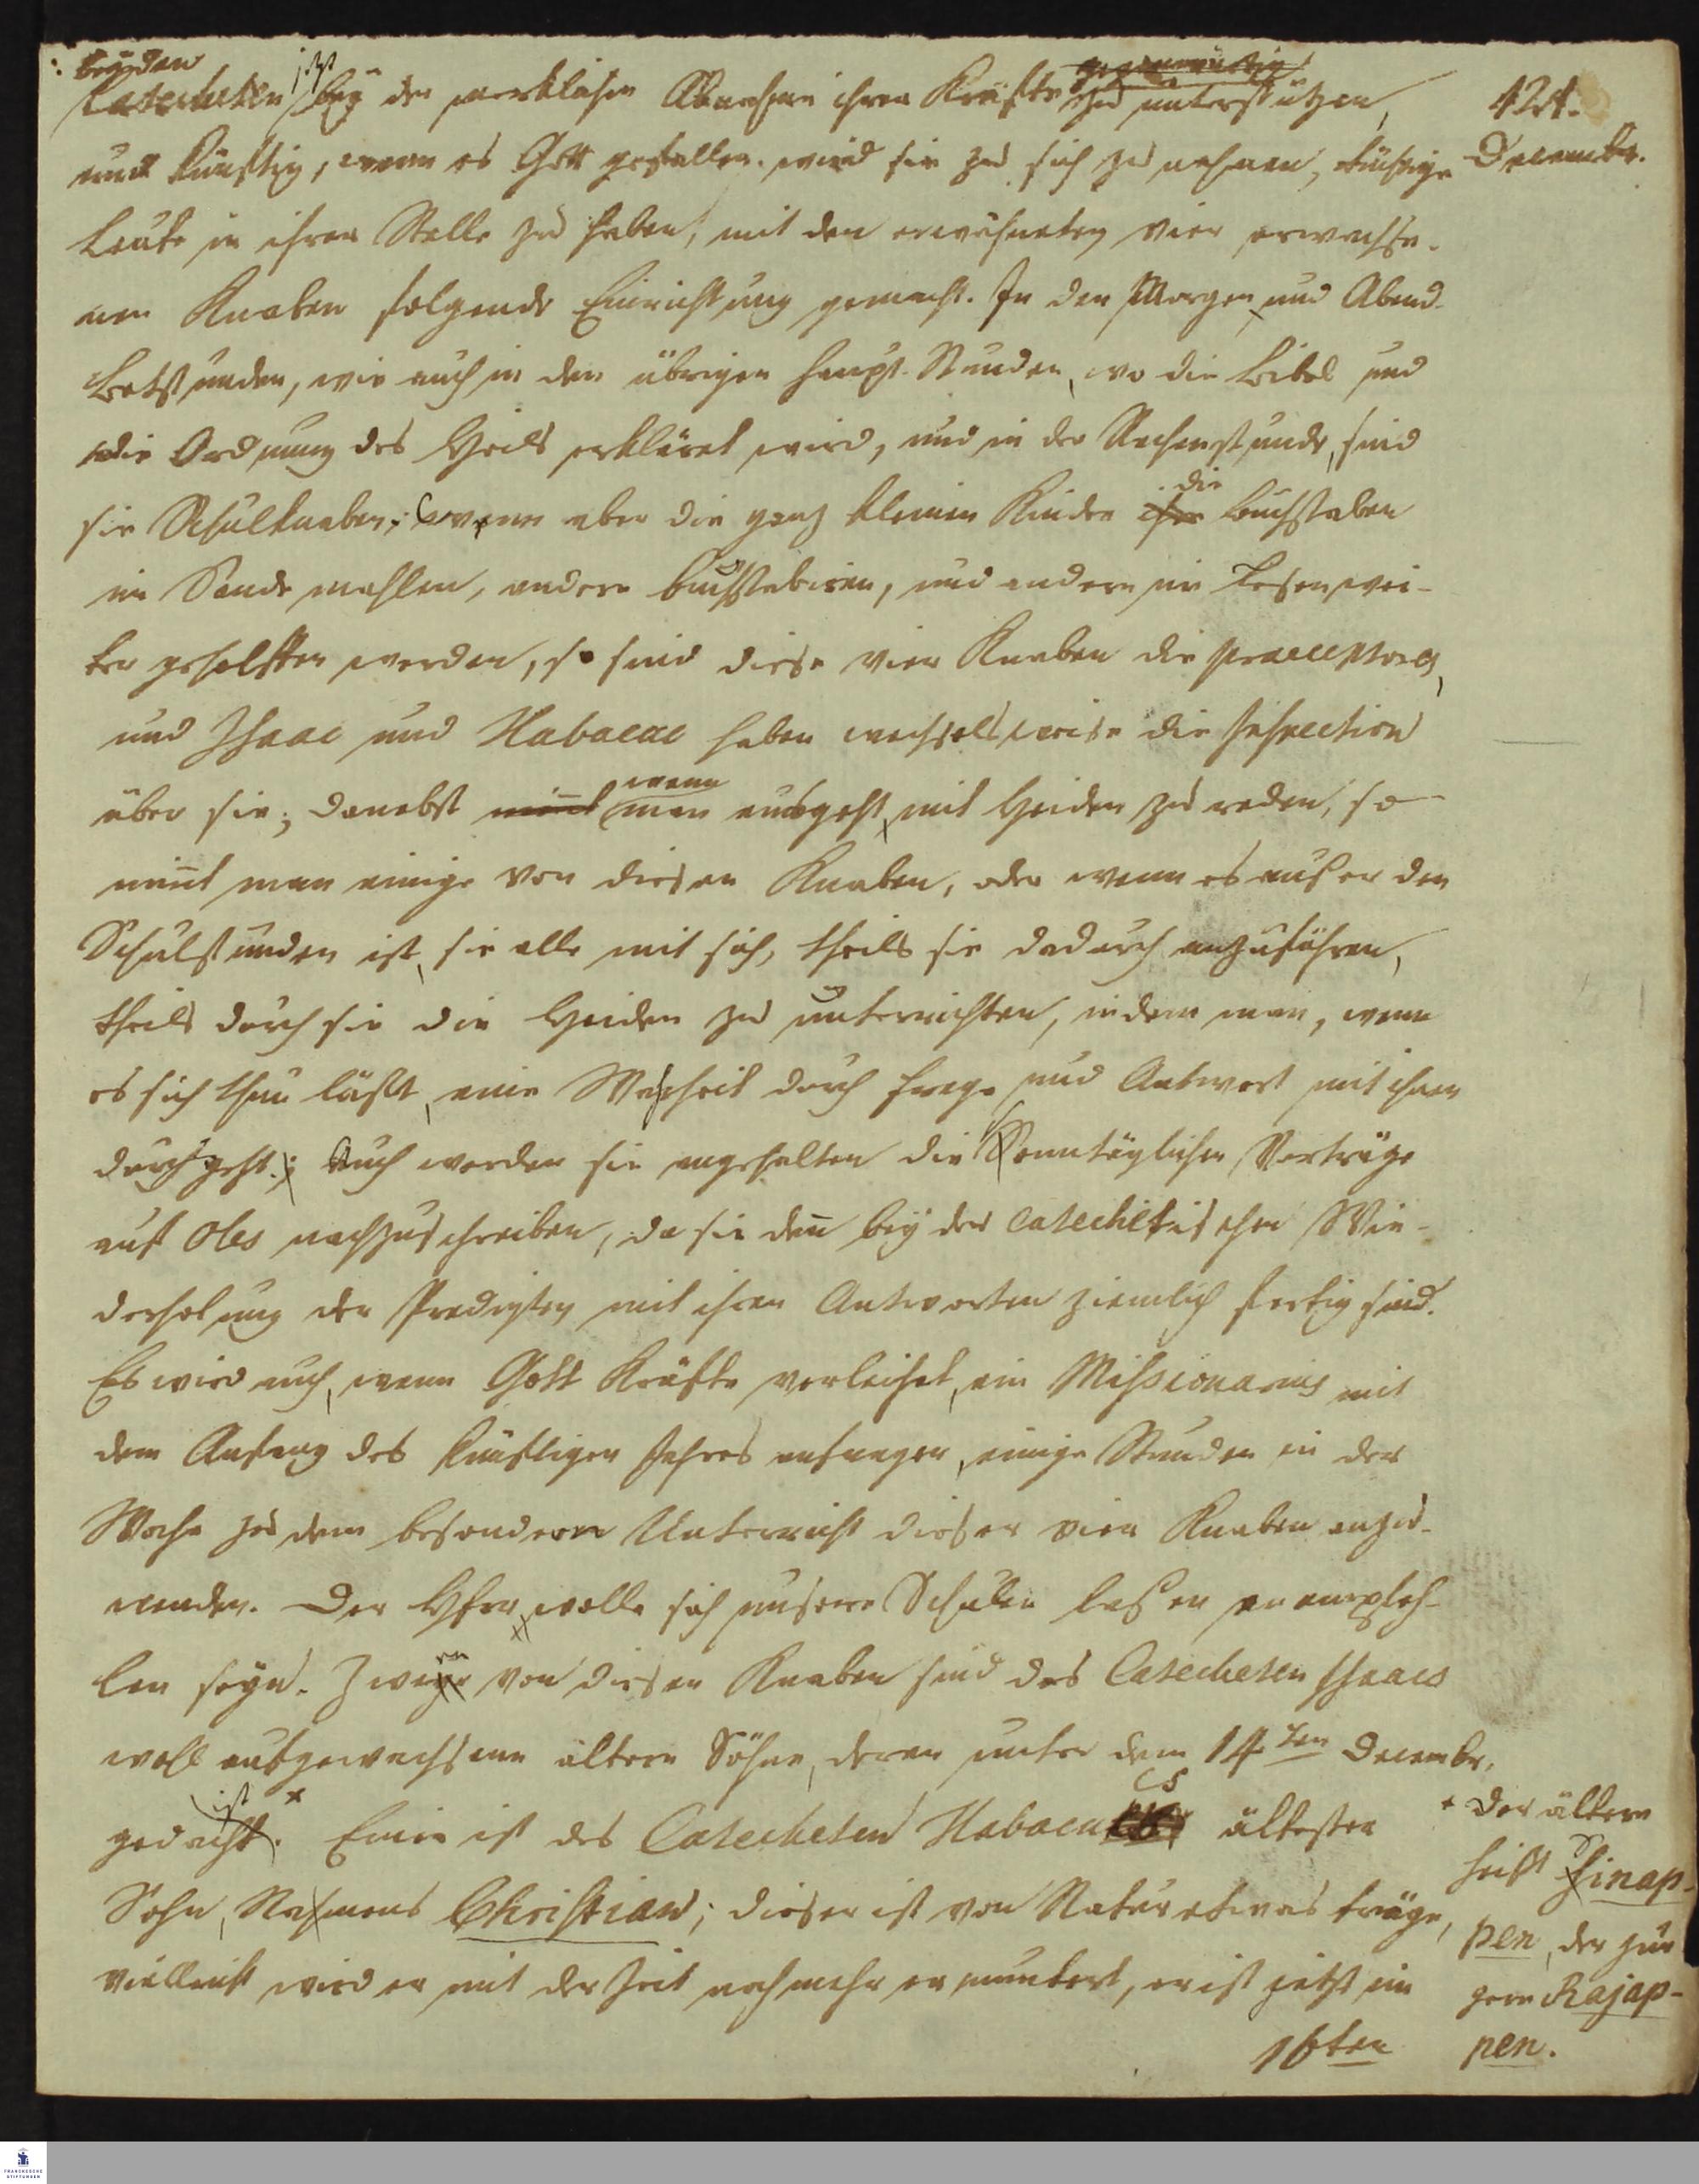 beyden
Catecheten jetzt bey der merklichen Abnahme ihrer Kräfte gegenwärtig zu unterstützen,
und künftig, wenn es Gott gefallen wird sie zu sich zu nehmen, tüchtige
Leute in ihrer Stelle zu haben, mit den erwähnten vier erwachse-
nen Knaben folgende Einrichtung gemacht. In den Morgen und Abend-
Betstunden, wie auch in den übrigen Haupt-Stunden, wo die Bibel und
die Ordnung des Heils erkläret wird, und in der Rechenstunde, sind
sie Schulknaben; wenn aber die ganz kleinen Kinder ihre die Buchstaben
im Sande mahlen, andere buchstabiren, und andern im Lesen wei-
ter geholffen werden, so sind diese vier Knaben die Praeceptores,
und Isaac und Habacuc haben wechselsweise die Inspection
über sie; danebst nimt wenn man ausgeht, mit Heiden zu reden, so
nimt man einige von diesen Knaben, oder wenn es außer den
Schulstunden ist, sie alle mit sich, theils sie dadurch anzuführen,
theils durch sie die Heiden zu unterrichten, indem man, wenn
es sich thun läßt, eine Wahrheit durch Frage und Antwort mit ihnen
durchgeht; Auch werden sie angehalten die Sonntäglichen Vorträge
auf Oles nachzuschreiben, da sie den bey der catechetischen Wie-
derholung der Predigten mit ihren Antworten ziemlich fertig sind.
Es wird auch, wenn Gott Kräfte verleihet, ein Missionarius mit
dem Anfang des künftigen Jahres anfangen, einige Stunden in der
Woche zu dem besondern Unterricht dieser vier Knaben anzu-
wenden. Der Herr wolle sich unsere Schulen laßen anempfoh-
len seyn. Zween von diesen Knaben sind des Catecheten Isaacs
wohl aufgewachsene ältere Söhne, deren unter dem 14ten Decembr.
gedacht ist. x Einer ist des Catecheten Habacucs ältester
Sohn, Nahmens Christian; dieser ist von Natur etwas träge,
vielleicht wird er mit der Zeit noch mehr ermuntert, er ist jetzt im
16ten
424.
December.
+ Der ältere
heißt Sinap-
pen, der jün
gere Rajap-
pen.
FRANCKESCHE
STIFTUNGEN